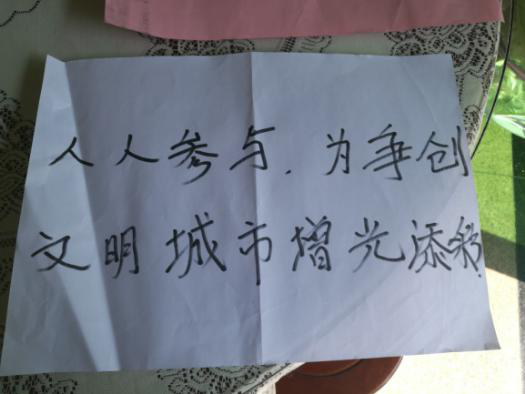 人人参与.为争创
文明城市增光添彩.